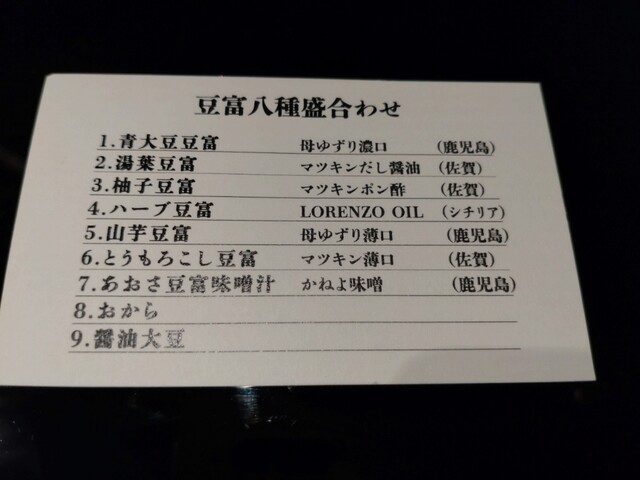 豆富八種盛合わせ
1.青大豆豆富 母ゆずり濃口 (鹿児島)
2.湯葉豆富 マツキンだし醤油 (佐賀)
3.柚子豆富 マツキンポン酢 (佐賀)
4.ハーブ豆富 LORENZO OIL (シチリア)
5.山芋豆富 母ゆずり薄口 (鹿児島)
6.とうもろこし豆富 マツキン薄口 (佐賀)
7.あおさ豆富味噌汁 かねよ味噌 (鹿児島)
8.おから
9.醤油大豆